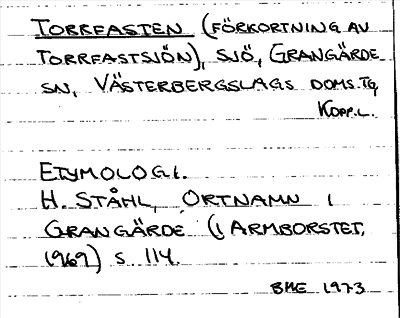 TORRFASTEN (FÖRKORTNING AV
TORRFASTSJÖN), SJÖ, GRANGÄRDE
SN, VÄSTERBERGSLAGS DOMS. TG
KOPP. L.
ETYMOLOGI.
H. STÅHL, ORTNAMN I
GRANGÄRDE (I ARMBORSTET,
1969) S. 114.
BME 1973